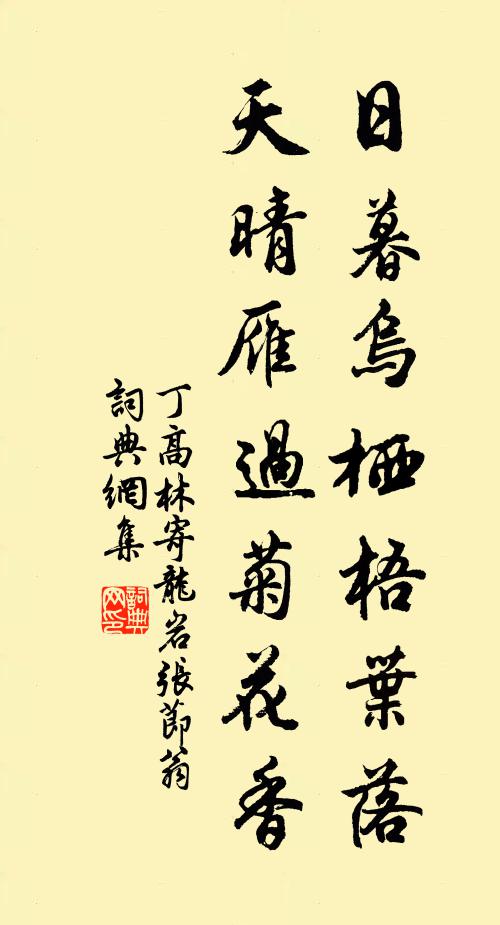 日暮烏栖梧葉落
天晴雁過菊花香
丁高林寄龍岩張節翁
詞典網集
詞典網印